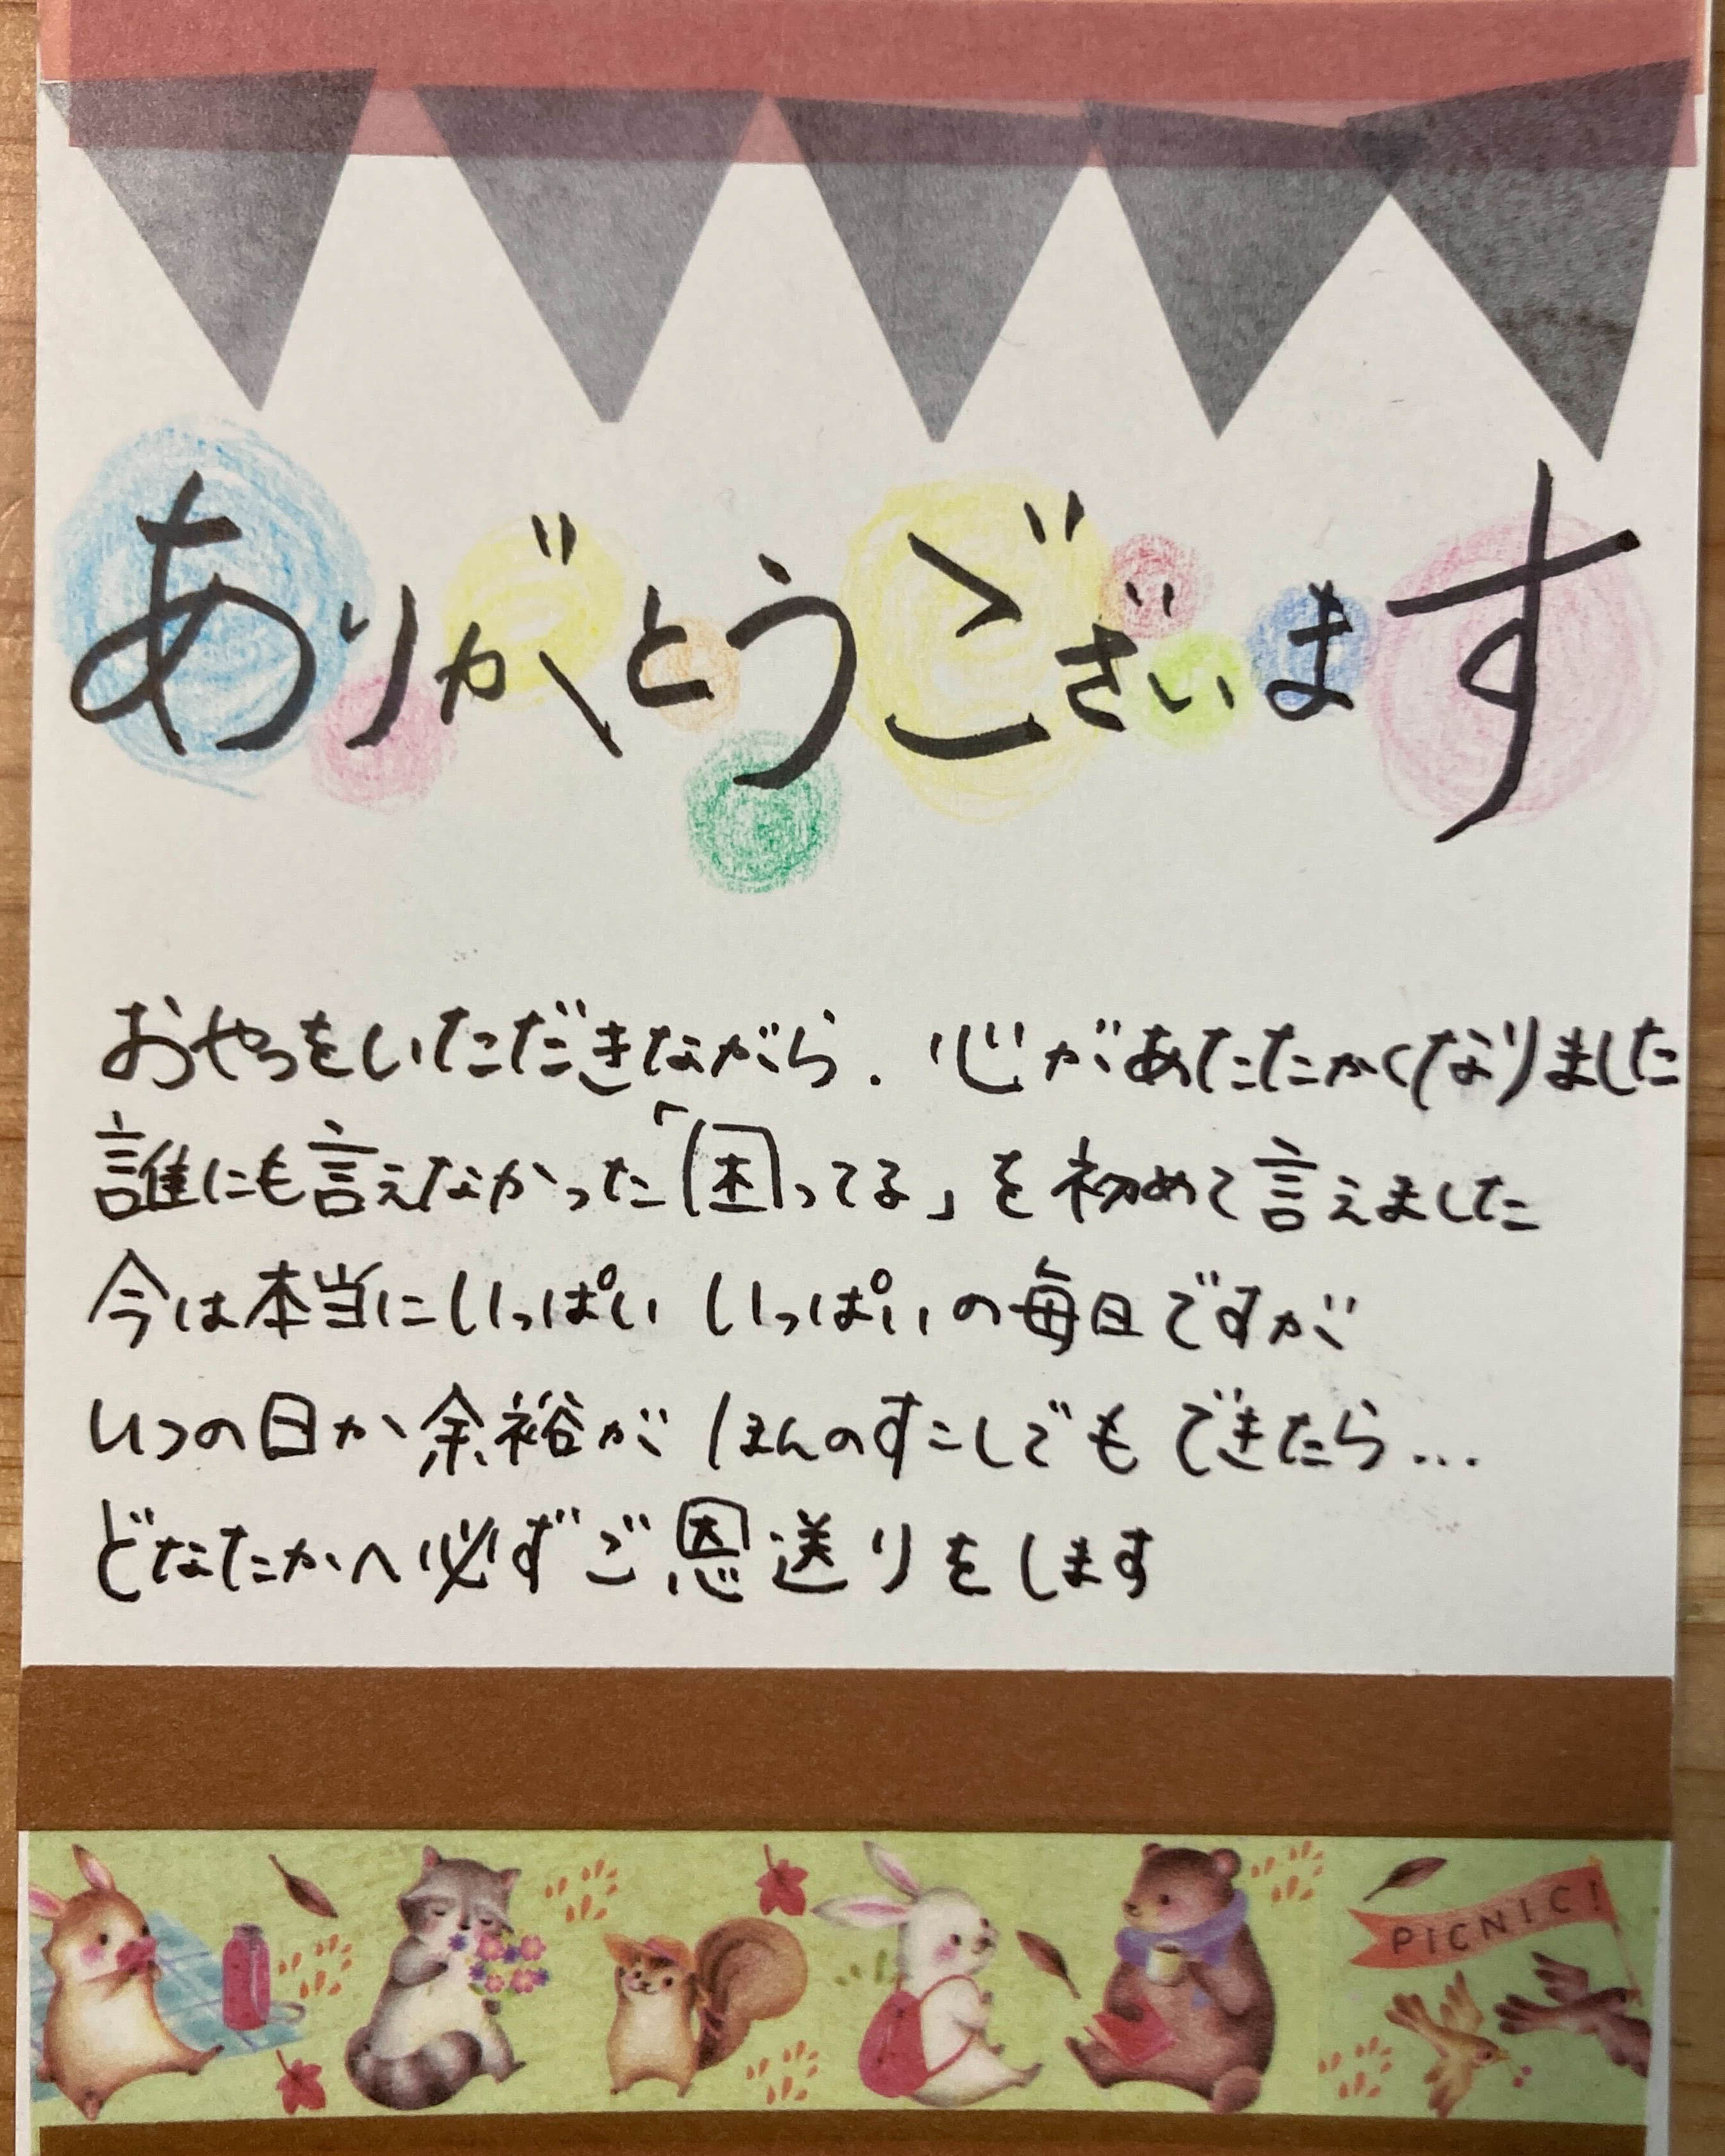 ありがとうございます
おやつをいただきながら、心があたたかくなりました
誰にも言えなかった「困ってる」を初めて言えました
今は本当にいっぱい いっぱいの毎日ですが
いつの日か余裕が ほんのすこしでも できたら...
どなたかへ必ずご恩送りをします
PICNIC!